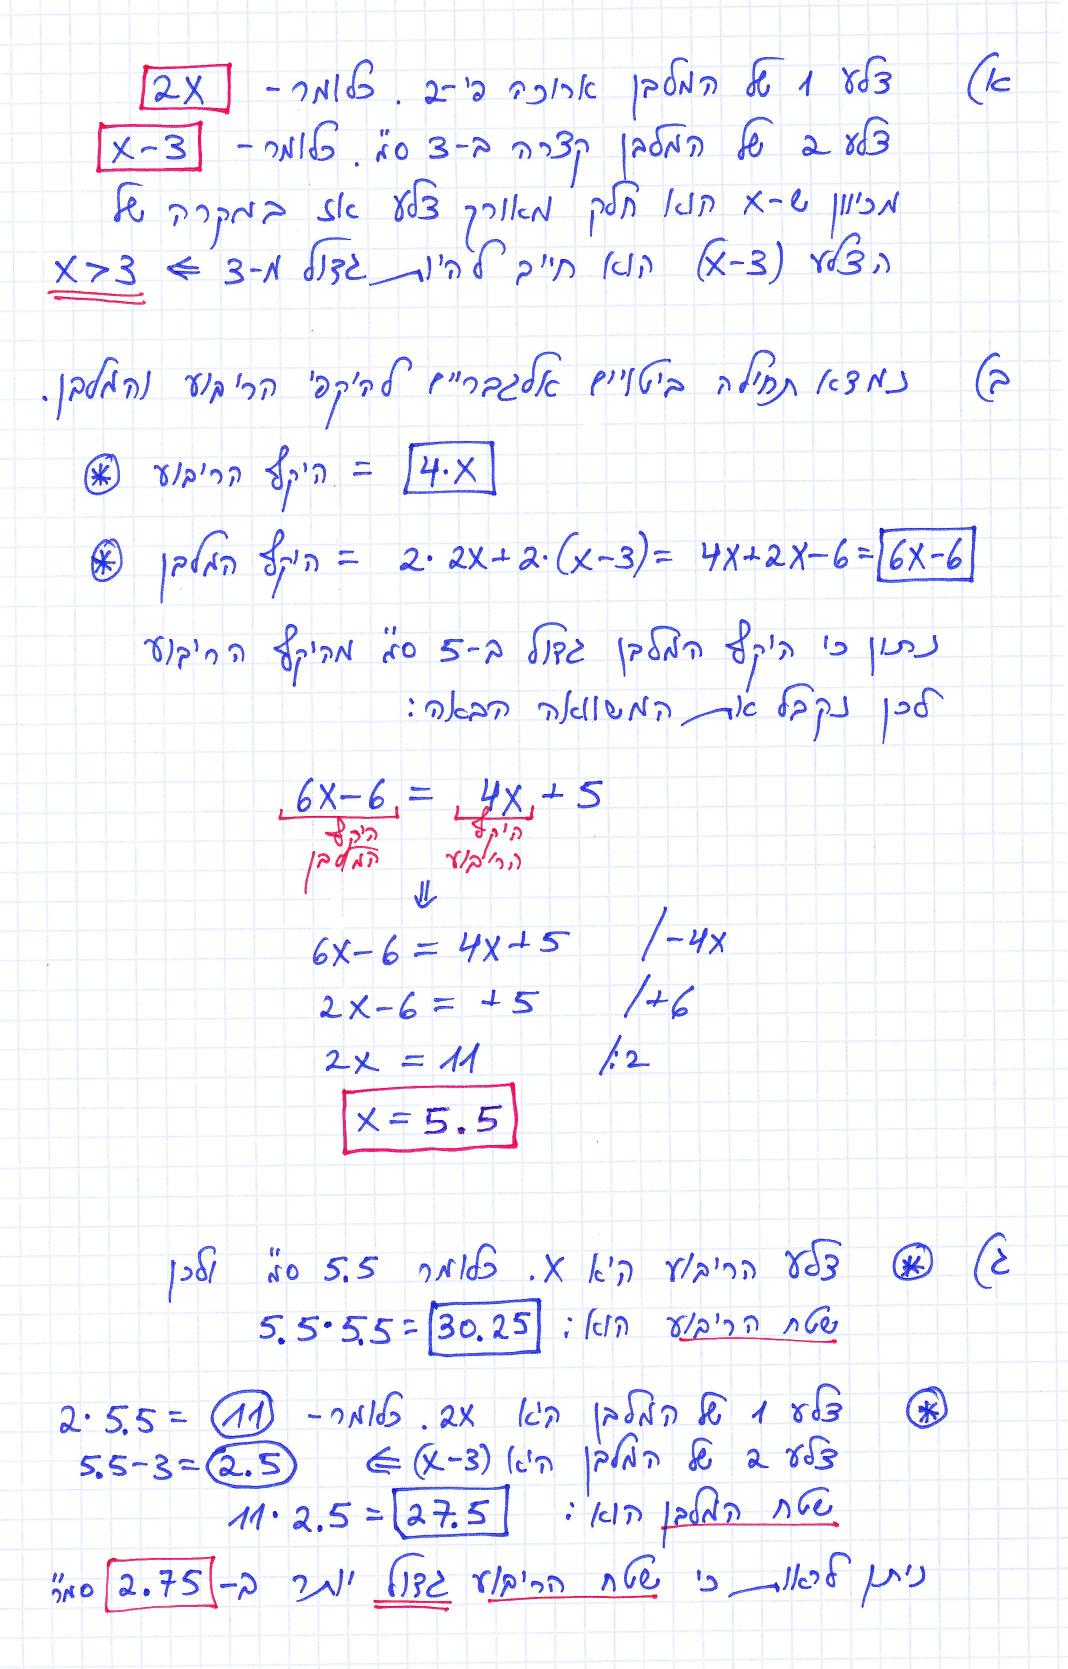 א) צלע 1 של המלבן ארוכה פי-2. כלומר- 2X
צלע 2 של המלבן קצרה ב-3 ס"מ. כלומר- X-3
מכיוון ש-X הוא חלק מאורך צלע אז במקרה של
הצלע (X-3) הוא חייב להיות גדול מ-3 ⇐ X>3
ב) נמצא תחילה ביטויים אלגבריים להיקפי הריבוע והמלבן.
⊛ היקף הריבוע = 4·X
⊛ היקף המלבן = 2·2X+2·(X-3)= 4X+2X-6=6X-6
נתון כי היקף המלבן גדול ב-5 ס"מ מהיקף הריבוע
לכן נקבל את המשוואה הבאה:
6X-6 = 4X+5
היקף המלבן היקף הריבוע
⇓
6X-6=4X+5 /-4X
2X-6=+5 /+6
2X=11 /:2
X=5.5
ג) ⊛ צלע הריבוע היא X. כלומר 5.5 ס"מ ולכן
שטח הריבוע הוא: 5.5·5.5=30.25
⊛ צלע 1 של המלבן היא 2X. כלומר- 2·5.5=11
צלע 2 של המלבן היא (X-3) ⇐ 5.5-3=2.5
שטח המלבן הוא: 11·2.5=27.5
ניתן לראות כי שטח הריבוע גדול יותר ב-2.75 סמ"ר